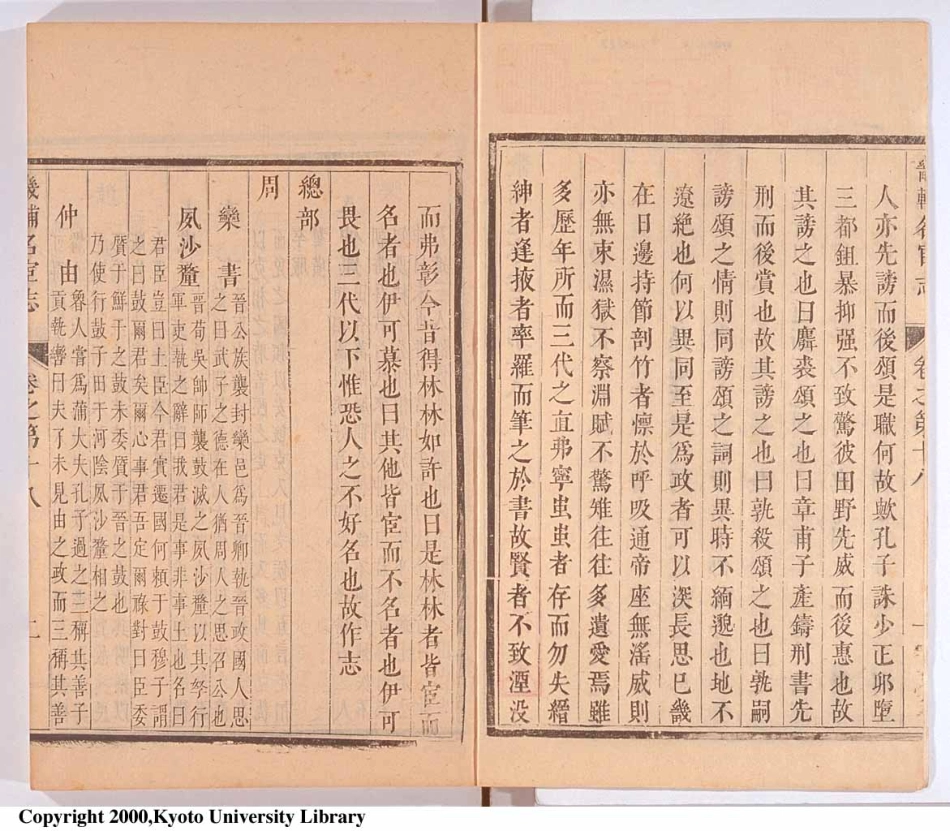 人亦先謗而後頌是職何故歟孔子誅少正卯墮
三都鉏暴抑强不致驚彼田野先威而後惠也故
其謗之也曰麛裘頌之也曰章甫子產鑄刑書先
刑而後賞也故其謗之也曰孰殺頌之也曰孰嗣
謗頌之情則同謗頌之詞則異時不緬邈也地不
遼絶也何以異同至是爲政者可以深長思已畿
在日邊持節剖竹者懔於呼吸通帝座無滛威則
亦無束濕獄不察淵賦不驚雉往往多遺愛焉雖
多歷年所而三代之直弗寧蚩蚩者存而勿失縉
紳者逢掖者率羅而筆之於書故賢者不致湮没
而弗彰今昔得林林如許也曰是林林者皆宦而
名者也伊可慕也曰其他皆宦而不名者也伊可
畏也三代以下惟恐人之不好名也故作志
總部
周
欒書 晉公族襲封欒邑爲晉卿執晉政國人思
之曰武子之德在人猶周人之思召公也
夙沙釐 晉荀吳帥師襲鼓滅之夙沙釐以其孥行
軍吏執之辭曰我君是事非事土也名曰
君臣豈曰土臣今君實遷國何賴于鼓穆子謂
之曰鼓爾君矣爾心事君吾定爾祿對曰臣委
質于鮮于之鼓未委質于晉之鼓也
乃使行鼓子田于河陰夙沙釐相之
仲由 魯人嘗爲蒲大夫孔子過之三稱其善子
貢執轡曰夫子未見由之政而三稱其善
畿輔名宦志
卷之第十八
二
卷之第十八